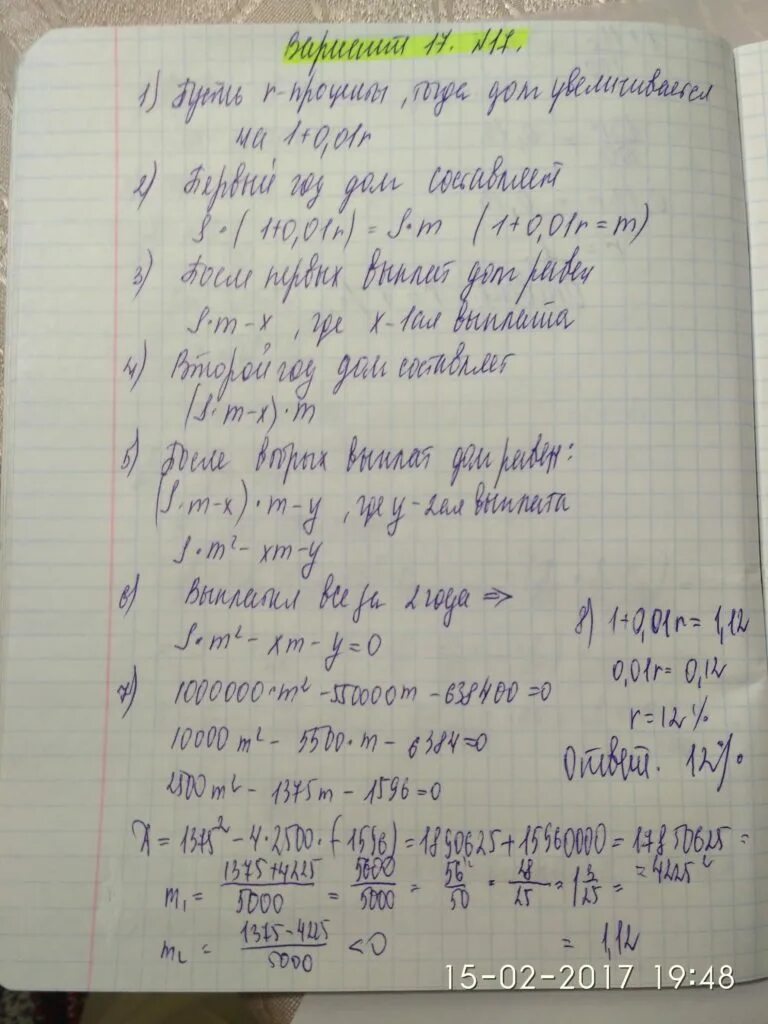 Вариант 17. №17.
1) Пусть r-проценты, тогда долг увеличивается
на 1+0,01r
2) Первый год долг составляет
S·(1+0,01r) = S·m (1+0,01r = m)
3) После первых выплат долг равен
S·m-x, где x-1ая выплата
4) Второй год долг составляет
(S·m-x)·m
5) После вторых выплат долг равен:
(S·m-x)·m-y, где y-2ая выплата
S·m² - xm-y
6) Выплатил все за 2 года ⇒
S·m² - xm-y=0
7) 1000000·m² - 550000m - 638400 = 0
10000m² - 5500·m - 6384=0
2500m² - 1375m - 1596=0
Д = 1375² - 4·2500·(-1596) = 1890625 + 15960000 = 17850625 =
= 4225²
m₁ = (1375+4225)/5000 = 5600/5000 = 56/50 = 28/25 = 1 3/25 =
= 1,12
m₂ = (1375-4225)/5000 < 0
8) 1+0,01r = 1,12
0,01r = 0,12
r = 12%
Ответ. 12%
15-02-2017 19:48